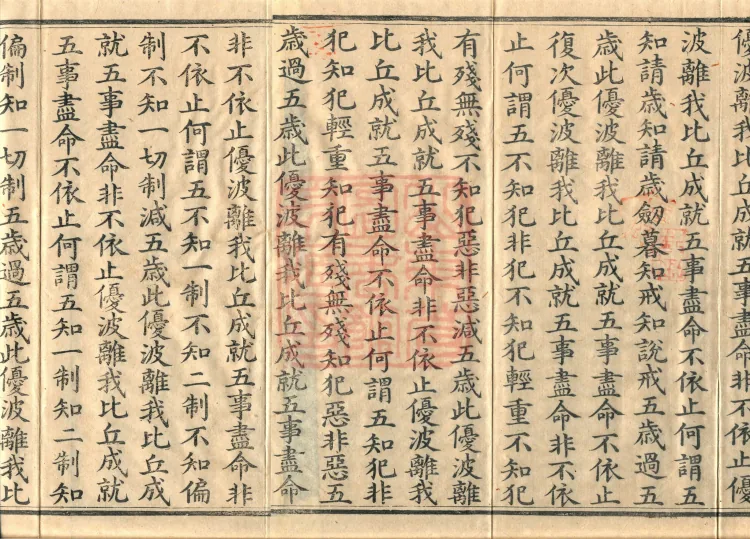 優波離我比丘成就五事盡命非不依止優
波離我比丘成就五事盡命不依止何謂五
知請歲知請歲劒暮知戒知說戒五歲過五
歲此優波離我比丘成就五事盡命不依止
復次優波離我比丘成就五事盡命非不依
止何謂五不知犯非犯不知犯輕重不知犯
有殘無殘不知犯惡非惡減五歲此優波離
我比丘成就五事盡命非不依止優波離我
比丘成就五事盡命不依止何謂五知犯非
犯知犯輕重知犯有殘無殘知犯惡非惡五
歲過五歲此優波離我比丘成就五事盡命
非不依止優波離我比丘成就五事盡命非
不依止何謂五不知一制不知二制不知偏
制不知一切制減五歲此優波離我比丘成
就五事盡命非不依止優波離我比丘成就
五事盡命不依止何謂五知一制知二制知
偏制知一切制五歲過五歲此優波離我比